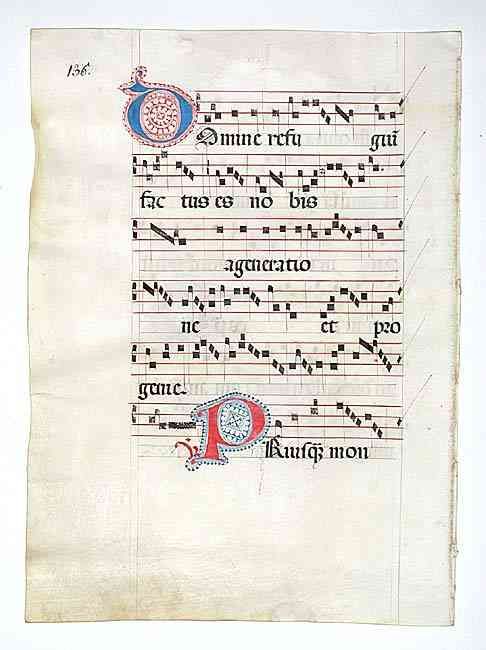 136.
DOmine refu giū
fac tus es no bis
a generatio
ne et pro
genie.
℣. PRiusq̄ mon